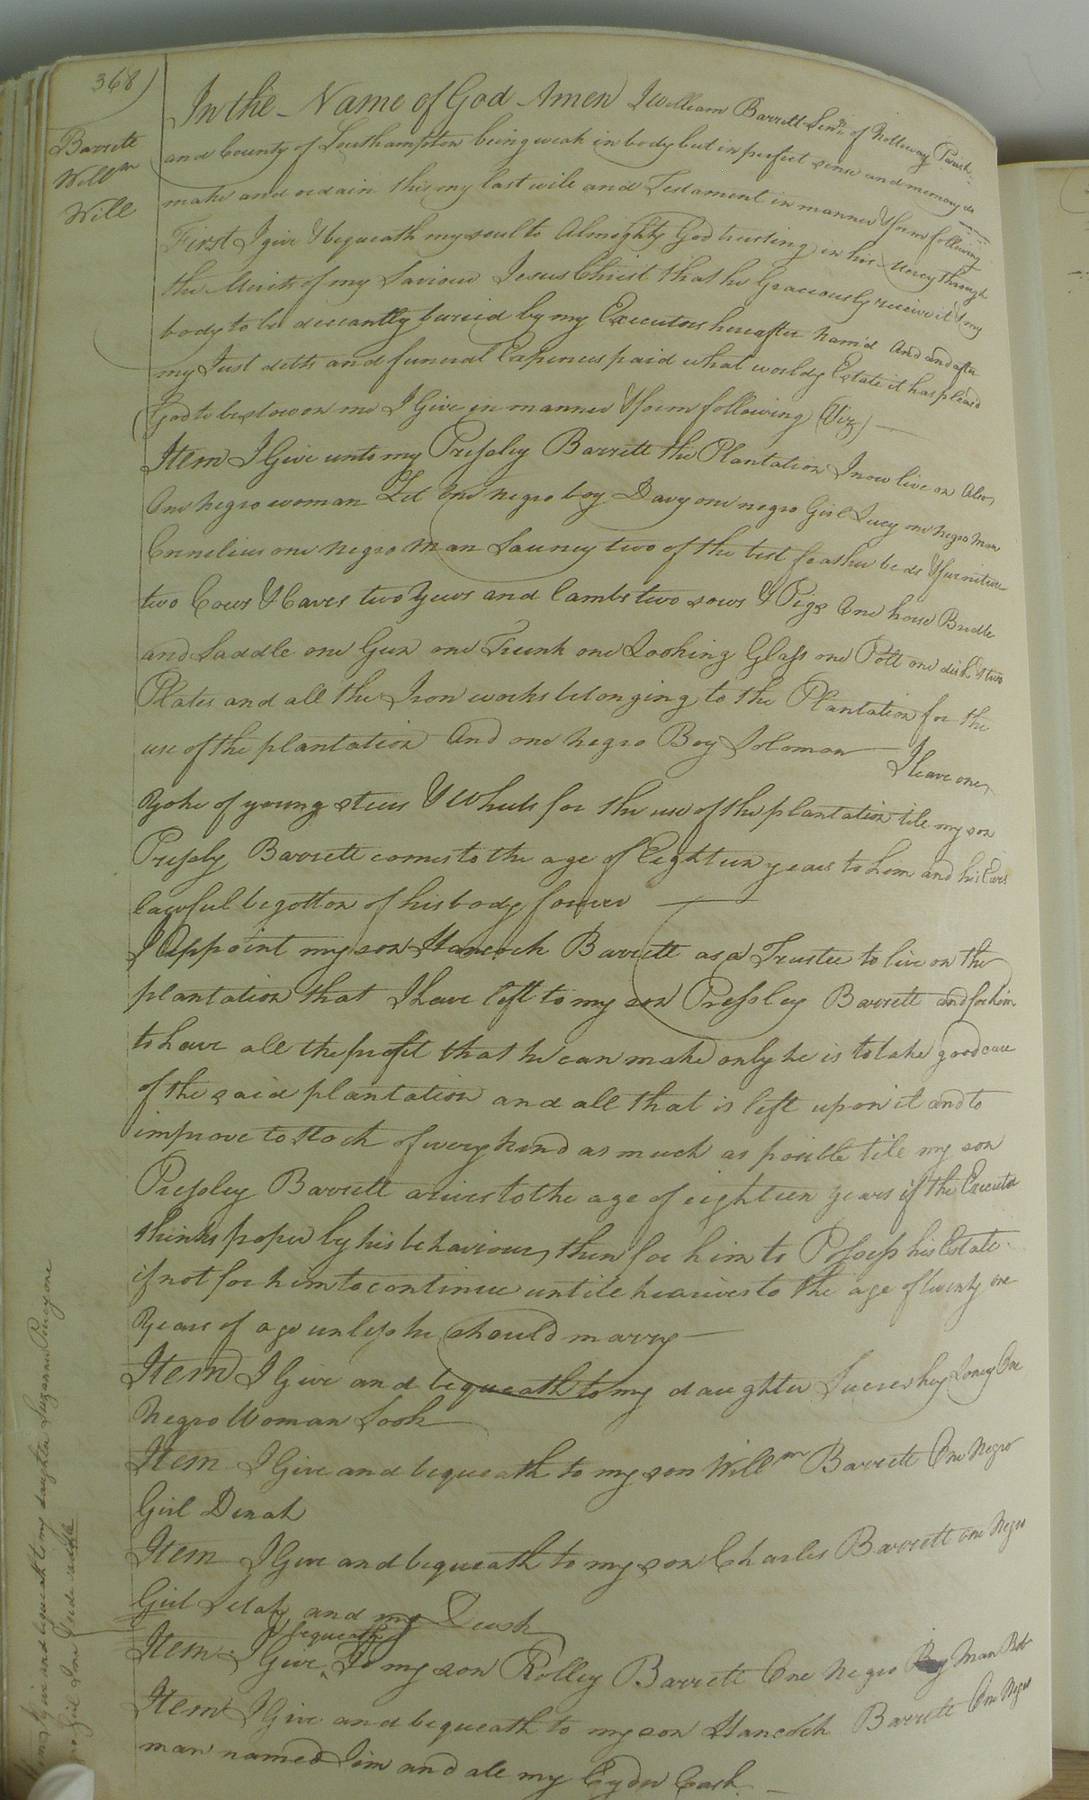 368
Barrett
Willm
Will
In the Name of God Amen I William Barrett Senr. of Nottoway Parish
and County of Southampton being weak in body but in perfect sense and memory do
make and ordain this my last will and Testament in manner & form following
First I give & bequeath my soul to Almighty God trusting in his Mercy through
the Merits of my Saviour Jesus Christ that he Graciously receive it & my
body to be decantly buried by my Executors hereafter Nam'd And and after
my Just debts and funeral Expences paid what worldy Estate it has pleasd
God to bestow on me I Give in manner & form following (Viz)
Item I Give unto my Pressley Barrett the Plantation I now live on Also
One negro woman One negro boy Davy one negro Girl Lucy one negro Man
Cornelius one negro Man Launey two of the best feather beds & furniture
two Cows & Caves two Yews and lambs two sows & Pigs One horse Bridle
and Saddle one Gun one Trunk one Looking Glass one Pott one dish two
Plates and all the Iron works belonging to the Plantation for the
use of the plantation And one negro Boy Solomon I leave one
Yoke of young steers & Wheels for the use of the plantation till my son
Pressly Barrett comes to the age of Eighteen years to him and his
lawful begotton of his body forever
I Appoint my son Hancock Barrett as a Trustee to live on the
plantation that I have left to my son Pressley Barrett and for him
to have all the profit that he can make only he is to take good care
of the said plantation and all that is left upon it and to
improve to Stock of every kind as much as posible till my son
Pressley Barrett arives to the age of eighteen years if the Executor
thinks proper by his behaviour, then for him to Possess his Estate
if not for him to continue untill he arives to the age of twenty one
Years of age unless he should marry
Item I Give and bequeath to my daughter One
Negro Woman Sook
Item I Give and bequeath to my son Willm Barrett One Negro
Girl Dinah
Item I Give and bequeath to my son Charles Barrett one Negro
Girl and my Desk
& bequeath
Item I Give To my son Rolley Barrett One Negro Man Bob
Item I Give and bequeath to my son Hancock Barrett One Negro
man named Jim and all my Cyder Cask
Item I give and bequeath to my daughter Suzanna one
negro Girl